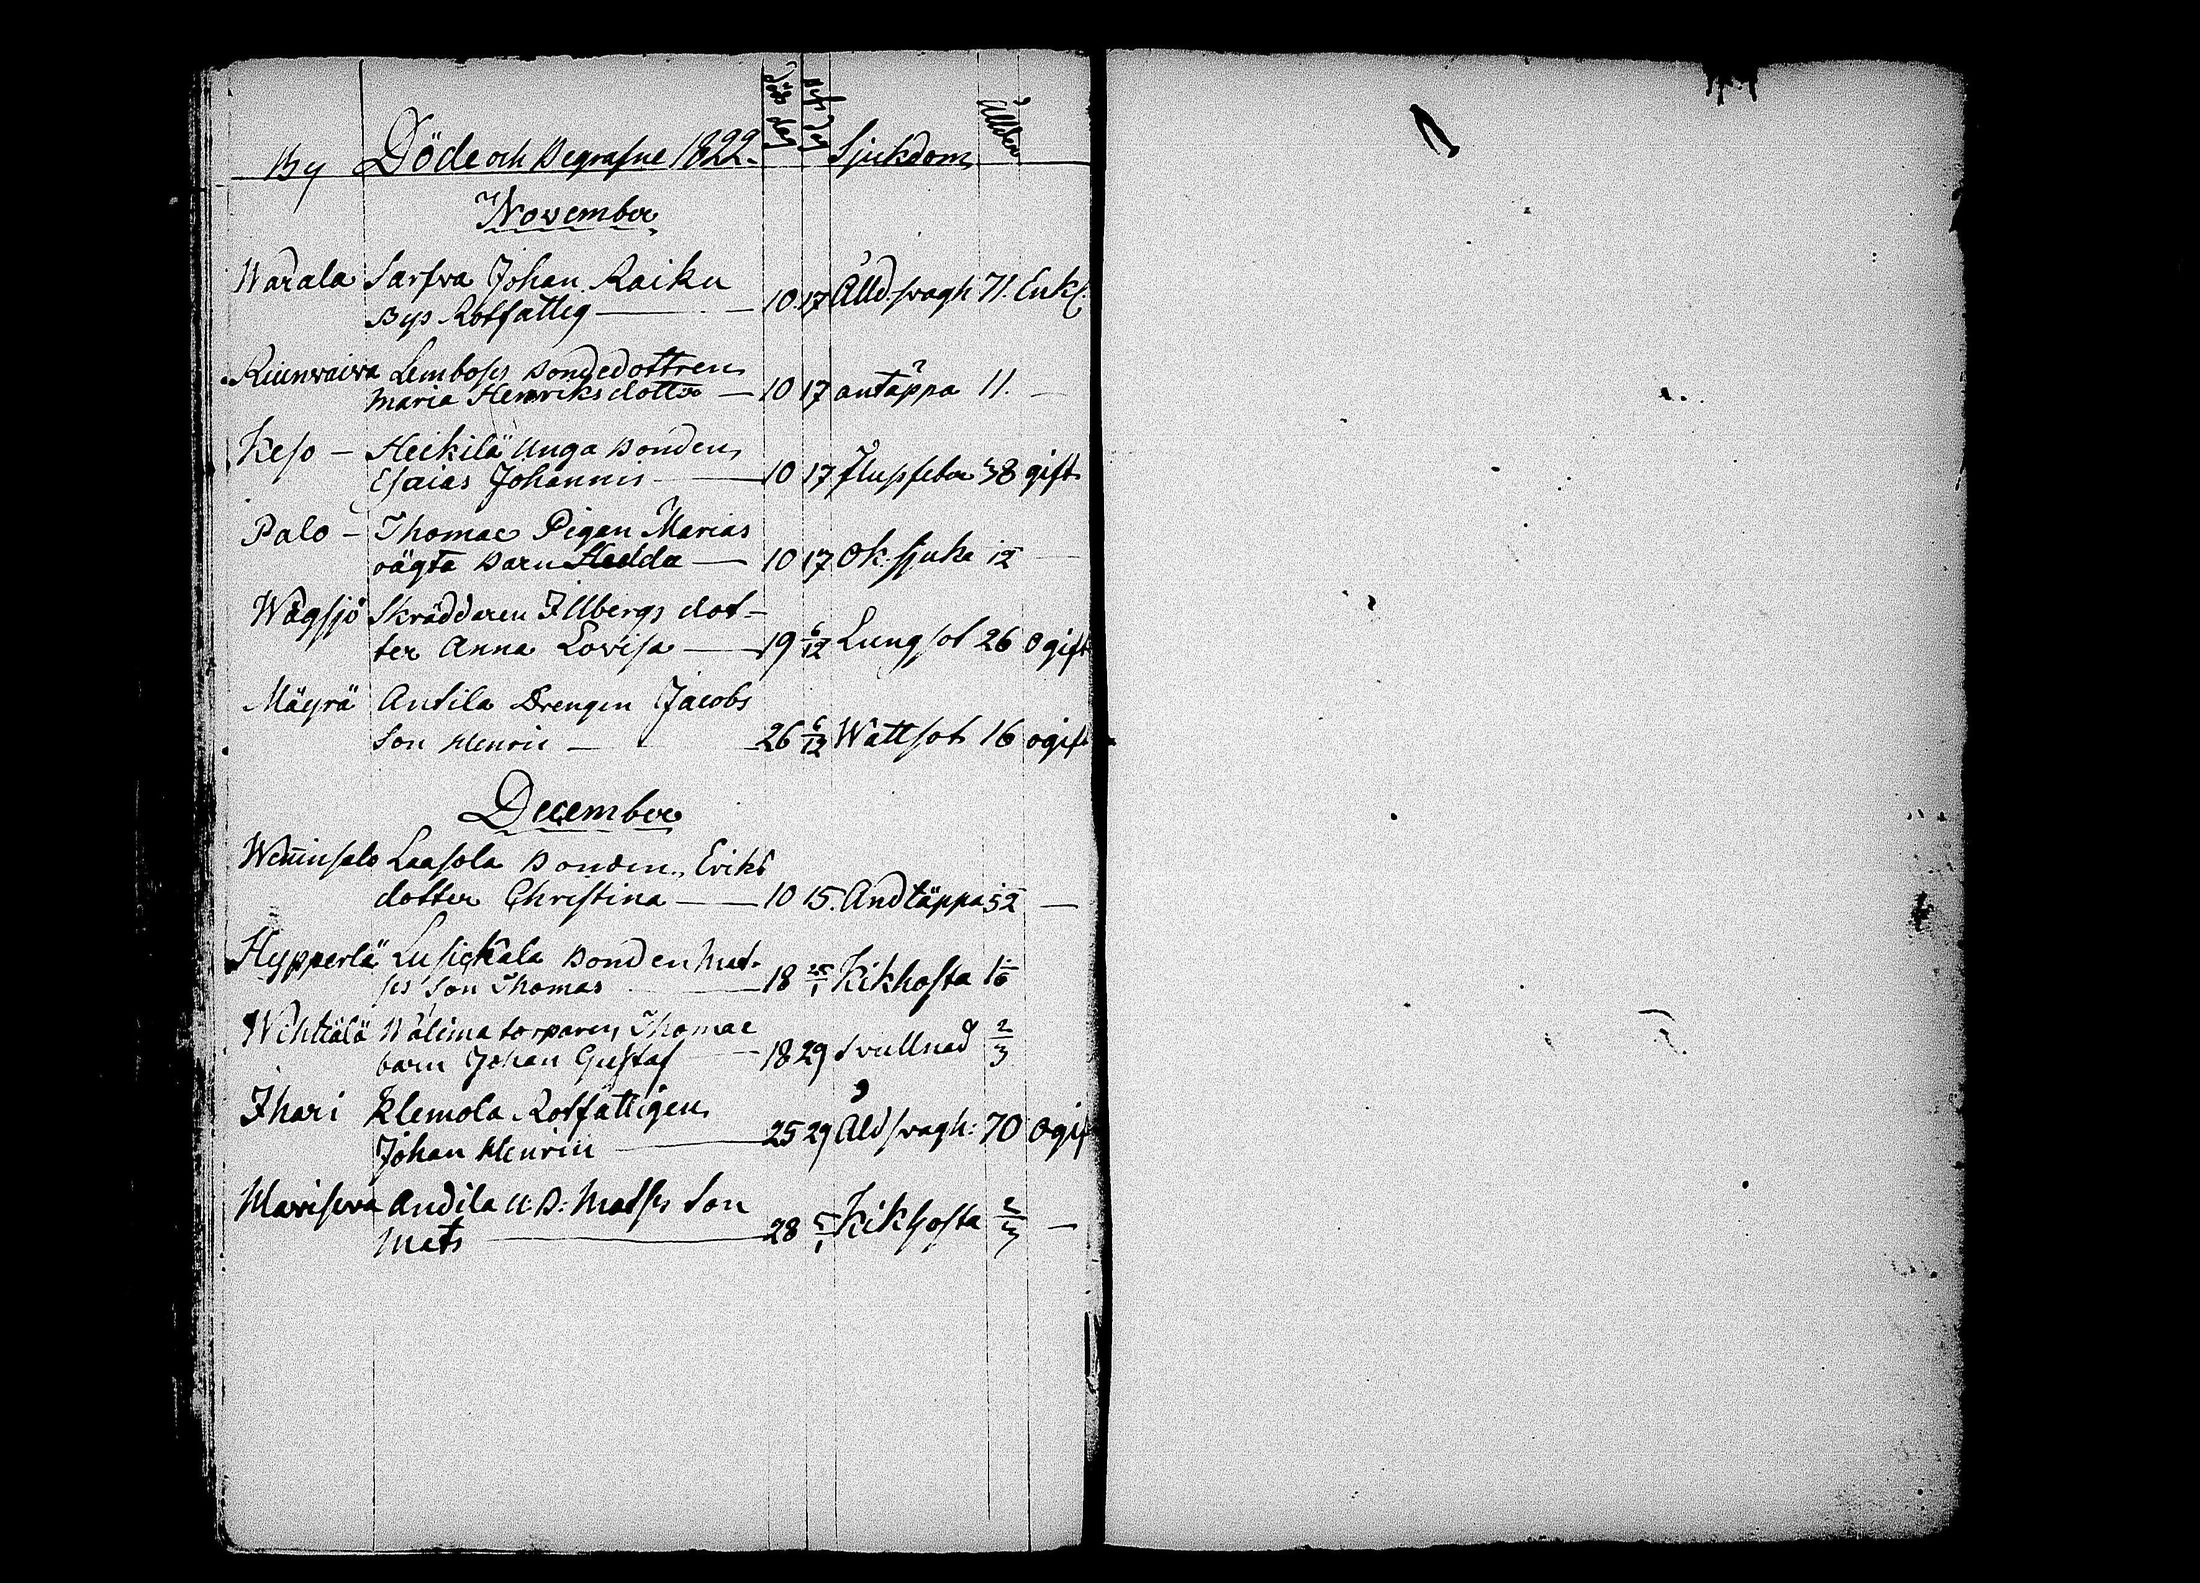 By Döde och Begrafne 1822. döds dag Sjukdom Ålder
November
Warala Sarfva Johan Raiku
Bys Rotfattig 10 17 Ålld.svagh 71. Enkl.
Lembois Bondedottren
Maria Henriksdotter 10 17 antäppa 11. —
Keso — Heikilä Unga Bonden
Esaias Johannis 10 17 flussfeber 38 gift
Palo — Thomae Pigan Marias
oägta Barn Hedda — 10 17 Ok: sjuka 12 —
Wågsjö Skräddaren Illbergs dot-
ter Anna Lovisa — 19 6/12 Lungsot 26 Ogift
Mäyrä Antila Drengen Jacobs
Son Henric — 26 6/12 Wattsot 16 ogift
December
Weninsalo Laasola Bonden Eriks
dotter Christina — 10 15. Andtäppa 52 —
Hypperlä Lusickala Bonden Mat-
ss Son Thomas 18 Kikhosta
Wihtiälä Wälima torparen Thomae
barn Johan Gustaf — 18 29 Svullnad 2/3
Ihari Klemola Rotfattigen
Johan Henrici — 25 29 Åld svagh: 70 Ogif
Andila U: B: Matss Son
Mats — 28 5/1 Kikhosta 2/3 —